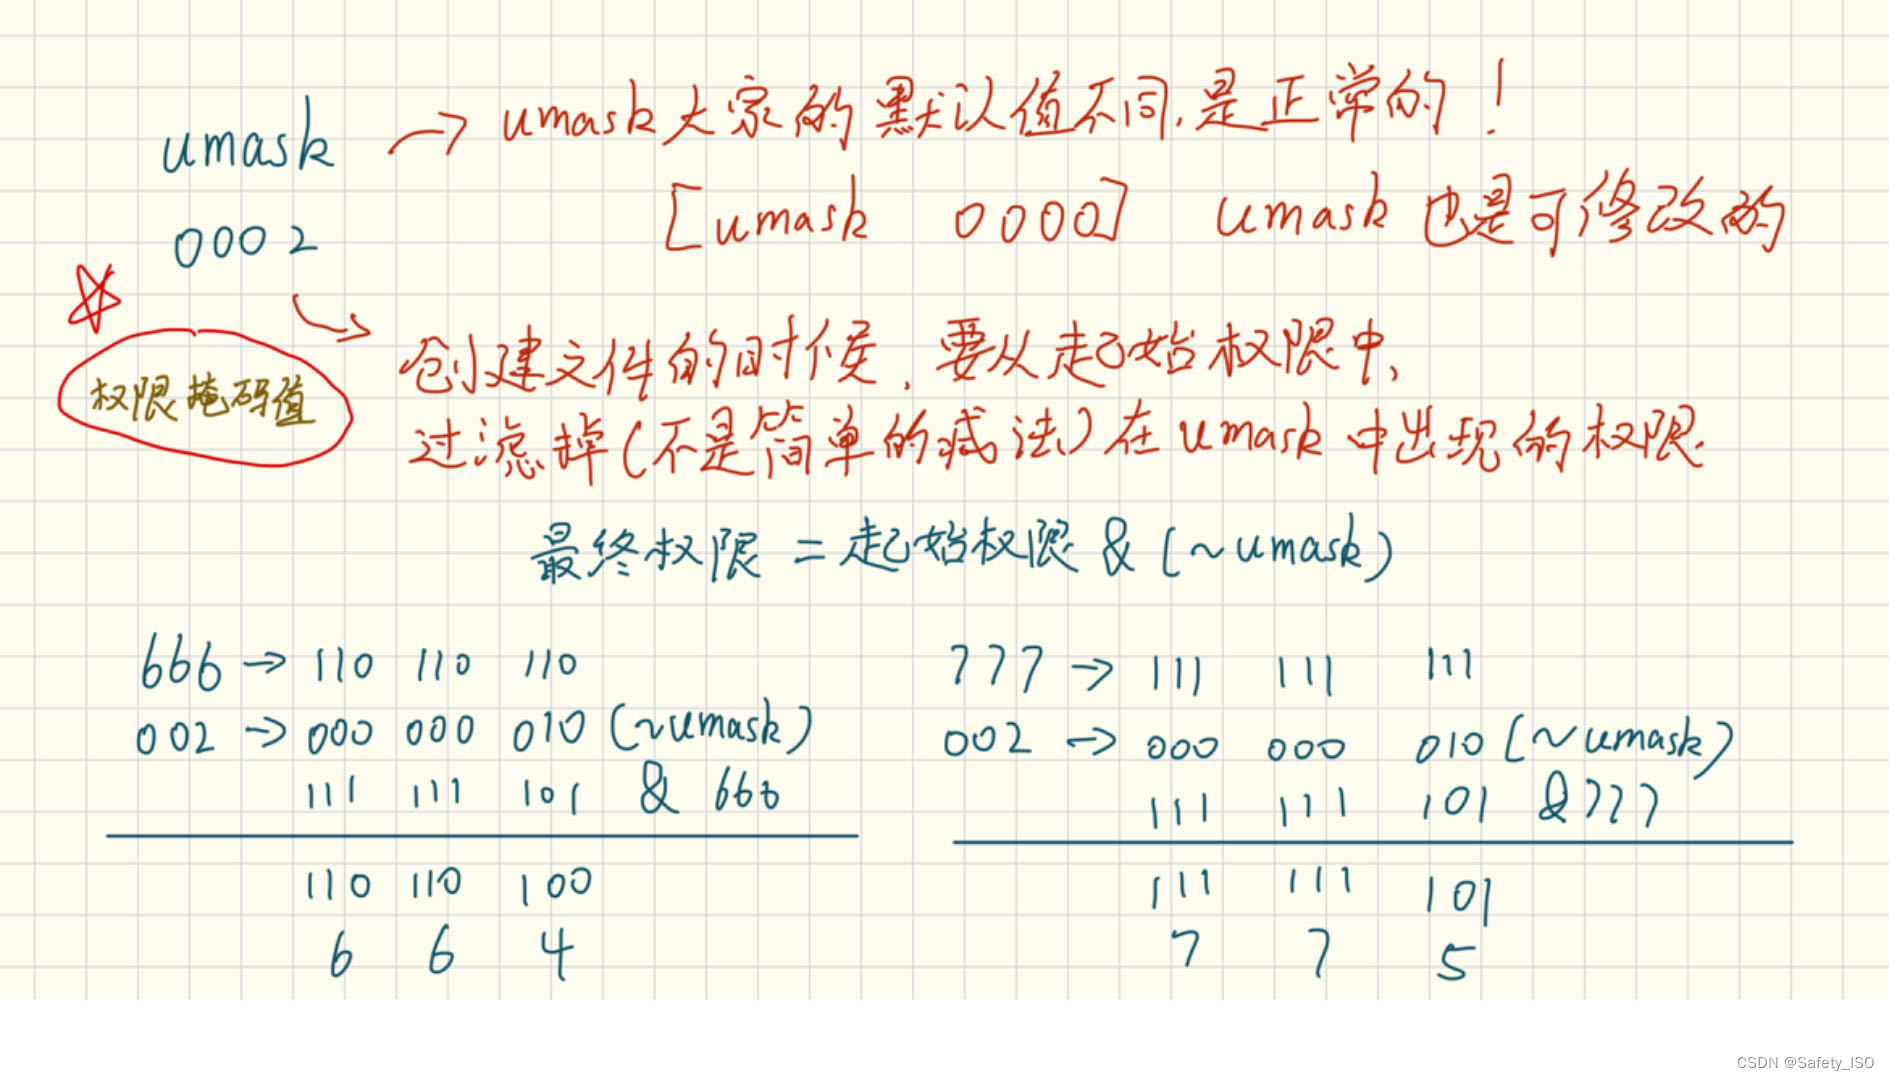 umask → umask大家的默认值不同,是正常的!
0002 [umask 0000] umask也是可修改的
权限掩码值
创建文件的时候,要从起始权限中,
过滤掉(不是简单的减法)在umask中出现的权限.
最终权限 = 起始权限 & (~umask)
666 → 110 110 110
002 → 000 000 010 (~umask)
111 111 101 & 666
110 110 100
6 6 4
777 → 111 111 111
002 → 000 000 010 (~umask)
111 111 101 & 777
111 111 101
7 7 5
CSDN @Safety_ISO